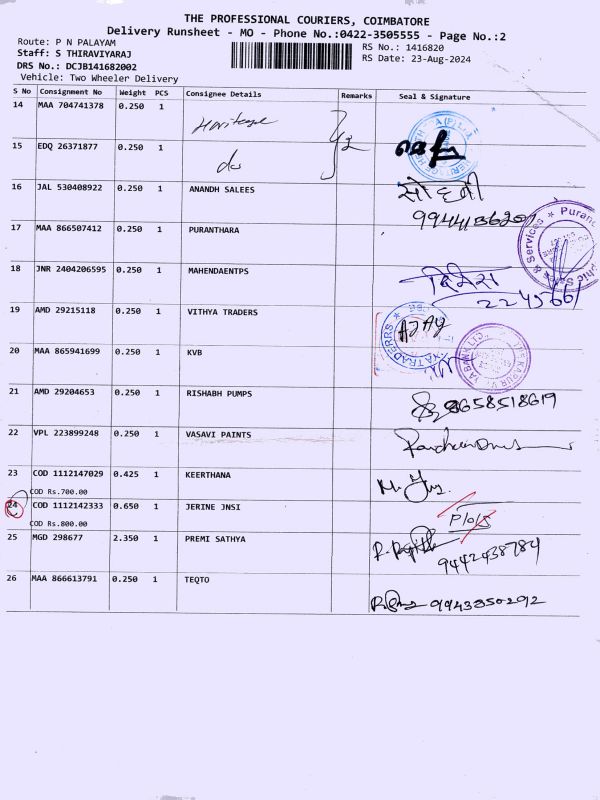 THE PROFESSIONAL COURIERS, COIMBATORE
Delivery Runsheet - MO - Phone No.:0422-3505555 - Page No.:2
Route: P N PALAYAM
RS No.: 1416820
Staff: S THIRAVIYARAJ
RS Date: 23-Aug-2024
DRS No.: DCJB141682002
Vehicle: Two Wheeler Delivery
S No Consignment No Weight PCS Consignee Details Remarks Seal & Signature
14 MAA 704741378 0.250 1 Heritage
15 EDQ 26371877 0.250 1 do
16 JAL 530408922 0.250 1 ANANDH SALEES
17 MAA 866507412 0.250 1 PURANTHARA
18 JNR 2404206595 0.250 1 MAHENDAENTPS दिनेश
19 AMD 29215118 0.250 1 VITHYA TRADERS AJAY
20 MAA 865941699 0.250 1 KVB
21 AMD 29204653 0.250 1 RISHABH PUMPS 8658518619
22 VPL 223899248 0.250 1 VASAVI PAINTS
23 COD 1112147029 0.425 1 KEERTHANA
COD Rs.700.00
24 COD 1112142333 0.650 1 JERINE JNSI
COD Rs.800.00
25 MGD 298677 2.350 1 PREMI SATHYA 9442438784
26 MAA 866613791 0.250 1 TEQTO 9943350292